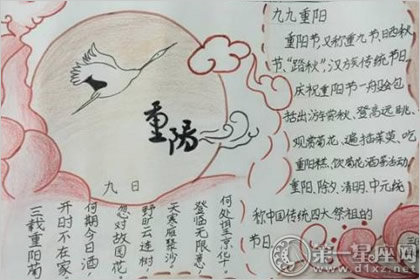 九九重阳
重阳节,又称重九节日晒秋
节、“踏秋”,汉族传统节日
庆祝重阳节一般会包
括出游赏秋、登高远眺、
观赏菊花、遍插茱萸、吃
重阳糕、饮菊花酒等活动
重阳、除夕、清明、中元统
称中国传统四大祭祖的
节日
重陽
九日
三载重阳菊
开时不在家
何期今日酒
忽对故园花
野旷云连树
天寒雁聚沙
登临无限意
何处望京华
第一星座网
www.d1xz.net